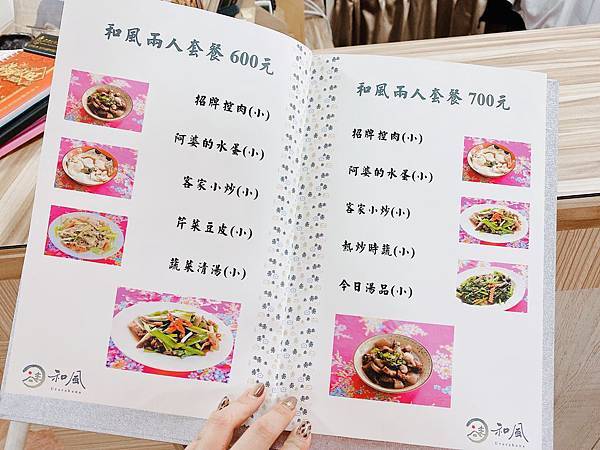 和風兩人套餐 600元
招牌控肉(小)
阿婆的水蛋(小)
客家小炒(小)
芹菜豆皮(小)
蔬菜清湯(小)
和風
和風兩人套餐 700元
招牌控肉(小)
阿婆的水蛋(小)
客家小炒(小)
熱炒時蔬(小)
今日湯品(小)
和風